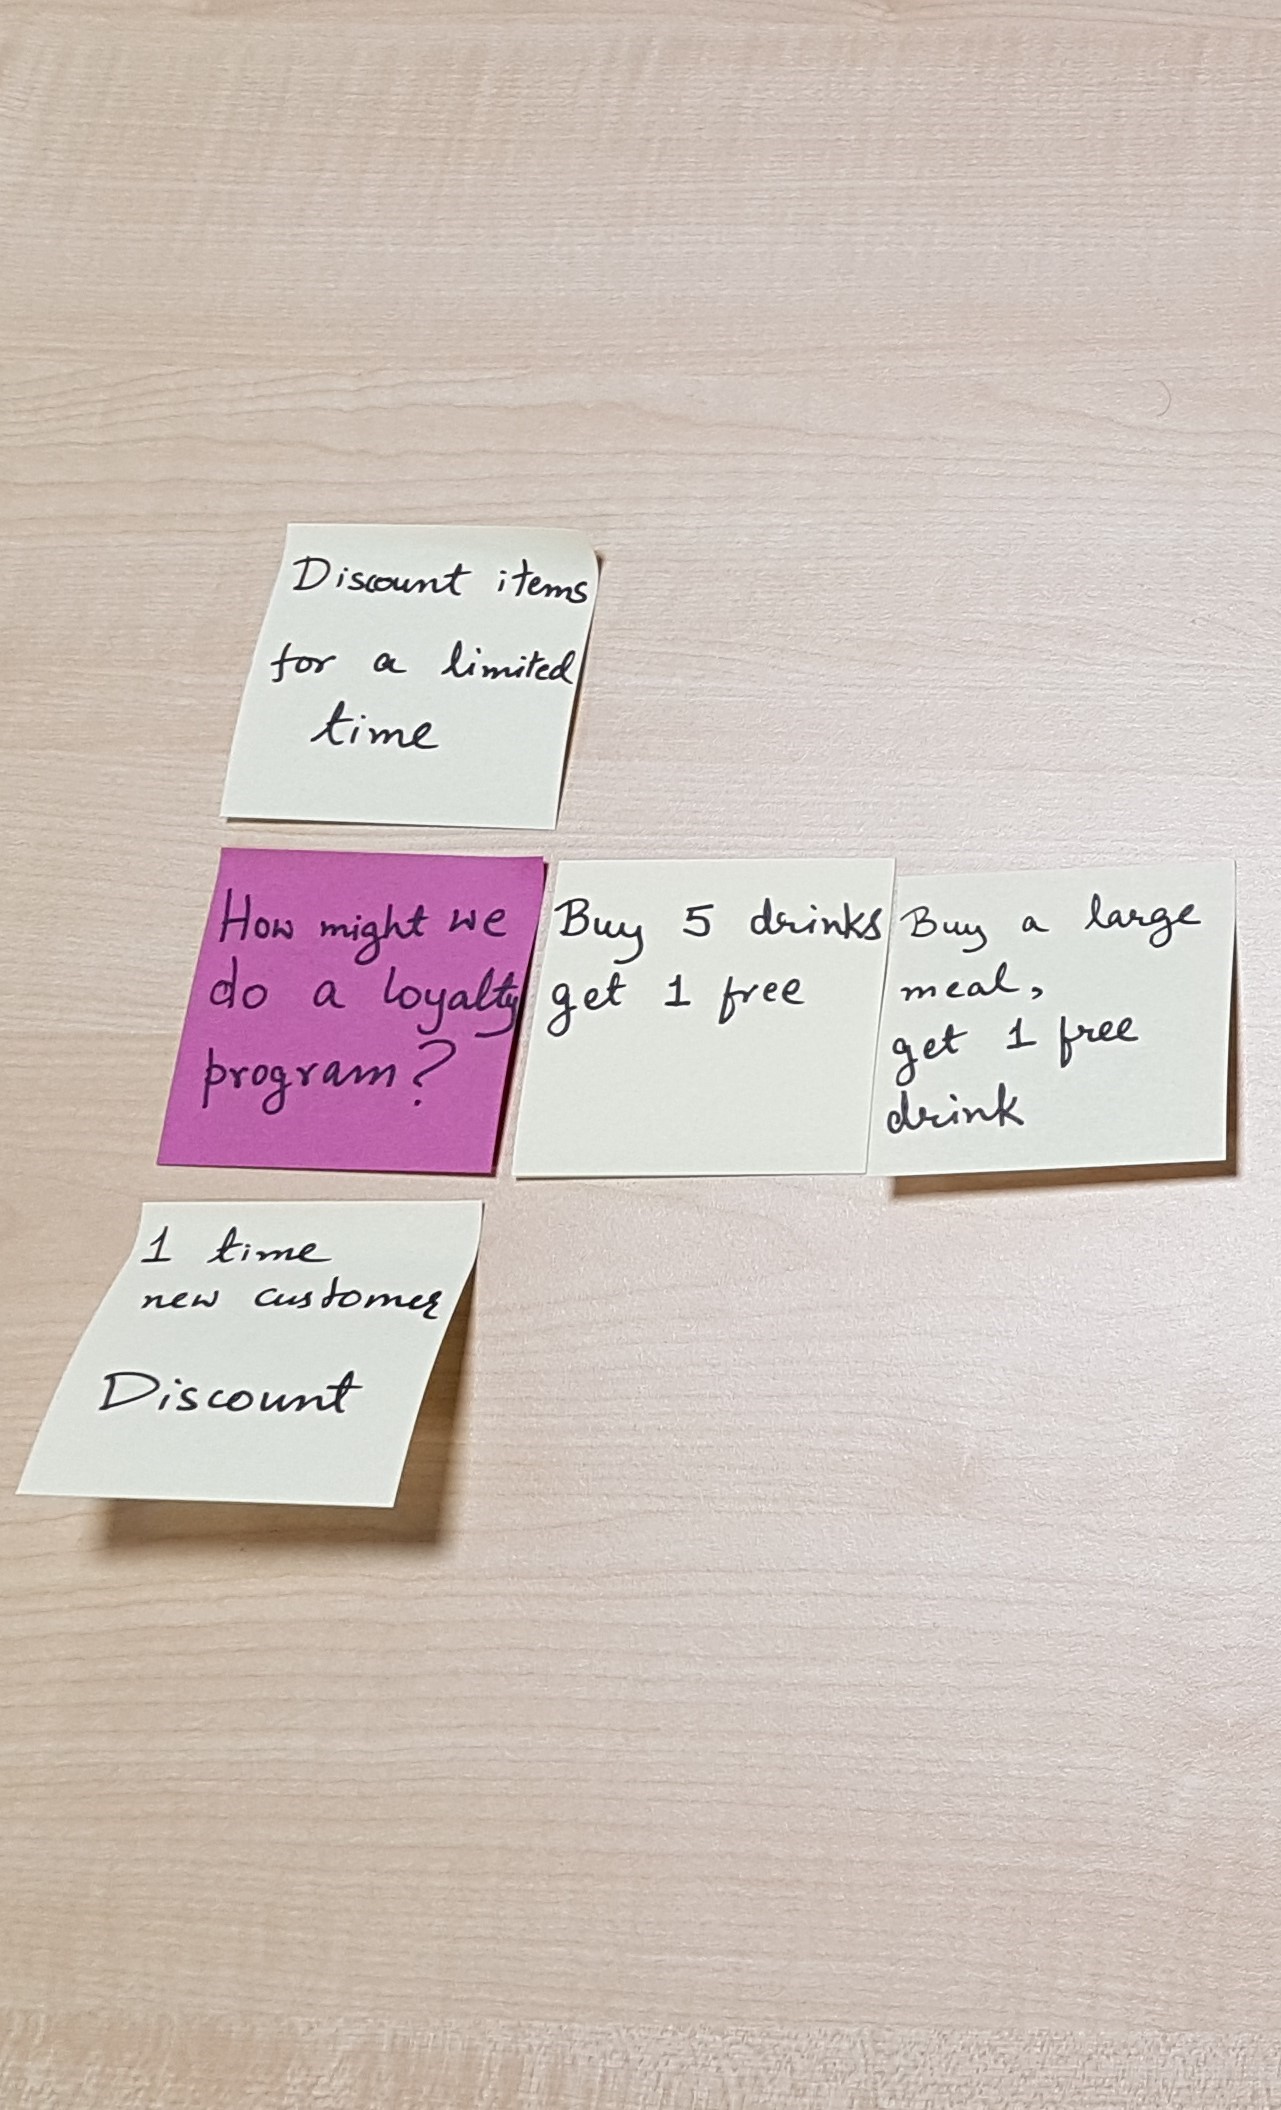 Discount items
for a limited
time
How might we
do a loyalty
program?
Buy 5 drinks
get 1 free
Buy a large
meal,
get 1 free
drink
1 time
new customer
Discount